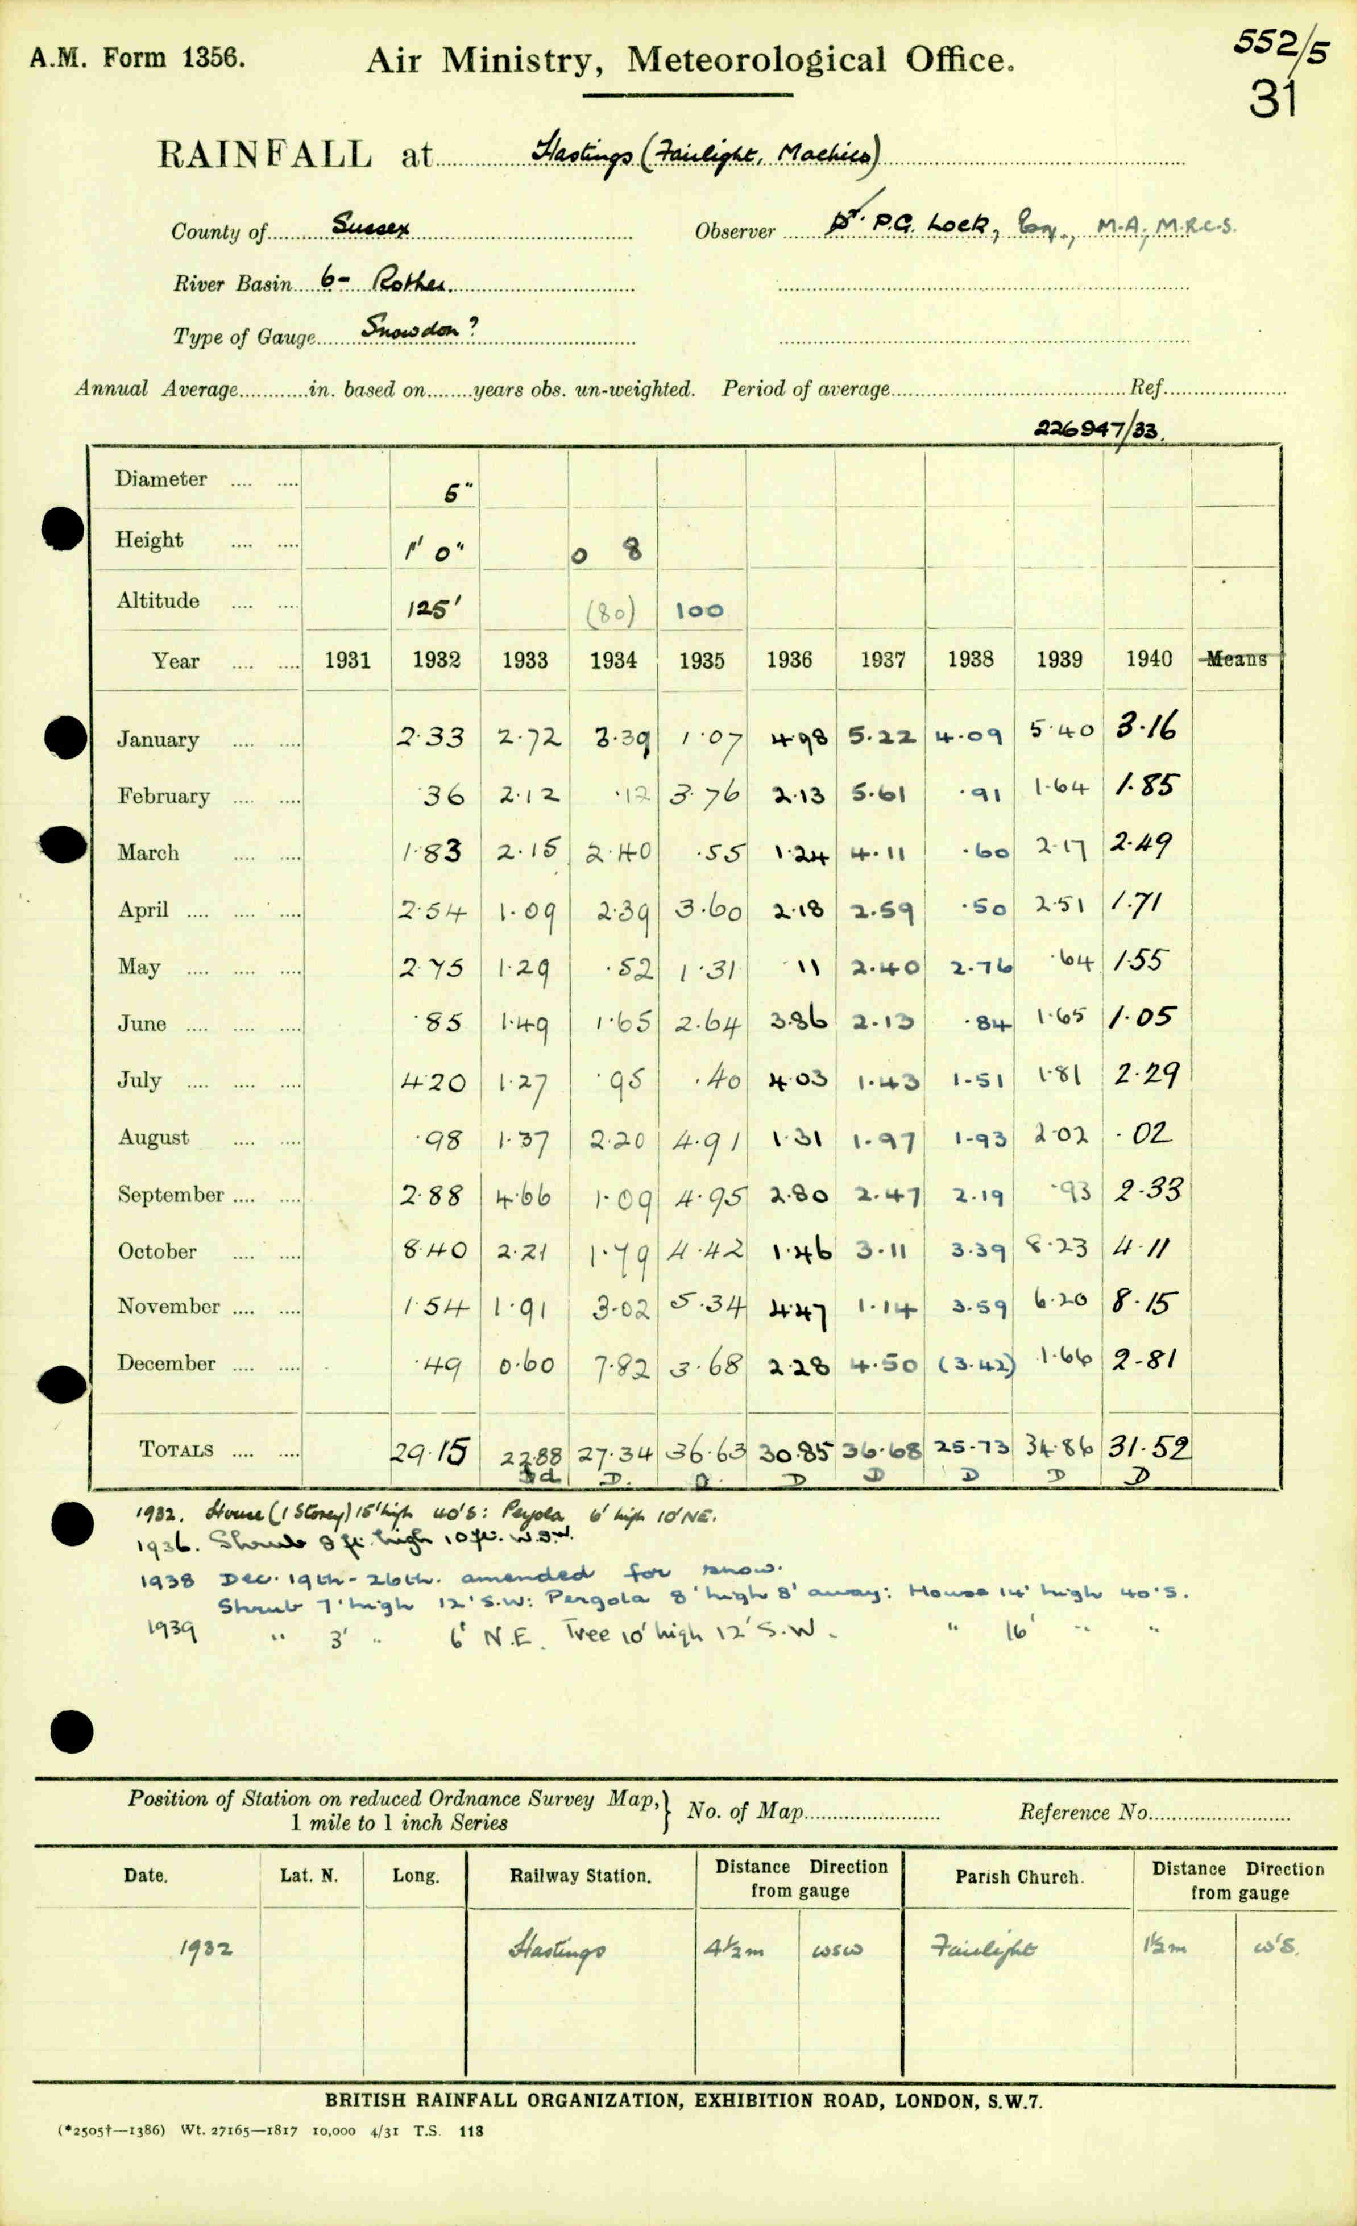 A.M. Form 1356.
Air Ministry, Meteorological Office.
552/5
31
RAINFALL at Hastings (Fairlight, Machico)
County of Sussex
Observer Dr. P.G. Lock, Esq., M.A., M.R.C.S.
River Basin 6- Rother.
Type of Gauge Snowdon?
Annual Average in. based on years obs. un-weighted. Period of average Ref.
226947/33.
Diameter 5"
Height 1' 0" 0 8
Altitude 125' (80) 100
Year 1931 1932 1933 1934 1935 1936 1937 1938 1939 1940 Means
January 2.33 2.72 3.39 1.07 4.98 5.22 4.09 5.40 3.16
February .36 2.12 .12 3.76 2.13 5.61 .91 1.64 1.85
March 1.83 2.15 2.40 .55 1.24 4.11 .60 2.17 2.49
April 2.54 1.09 2.39 3.60 2.18 2.59 .50 2.51 1.71
May 2.75 1.29 .52 1.31 .11 2.40 2.76 .64 1.55
June .85 1.49 1.65 2.64 3.86 2.13 .84 1.65 1.05
July 4.20 1.27 .95 .40 4.03 1.43 1.51 1.81 2.29
August .98 1.37 2.20 4.91 1.31 1.97 1.93 2.02 .02
September 2.88 4.66 1.09 4.95 2.80 2.47 2.19 .93 2.33
October 8.40 2.21 1.79 4.42 1.46 3.11 3.39 8.23 4.11
November 1.54 1.91 3.02 5.34 4.47 1.14 3.59 6.20 8.15
December .49 0.60 7.82 3.68 2.28 4.50 (3.42) 1.66 2.81
TOTALS 29.15 22.88 27.34 36.63 30.85 36.68 25.73 34.86 31.52
D. D. D D D D D
1932. House (1 Storey) 15' high 40' S: Pergola 6' high 10' NE.
1936. Shrub 8 ft. high 10 ft. W.S.W.
1938 Dec. 19th - 26th. amended for snow.
Shrub 7' high 12' S.W: Pergola 8' high 8' away: House 14' high 40' S.
1939 " 3' " 6' N.E. Tree 10' high 12' S.W. " 16' " "
Position of Station on reduced Ordnance Survey Map, 1 mile to 1 inch Series } No. of Map Reference No.
Date. Lat. N. Long. Railway Station. Distance Direction from gauge Parish Church. Distance Direction from gauge
1932 Hastings 4½m WSW Fairlight 1½m W'S.
BRITISH RAINFALL ORGANIZATION, EXHIBITION ROAD, LONDON, S.W.7.
(*2505†—1386) Wt. 27165—1817 10,000 4/31 T.S. 113